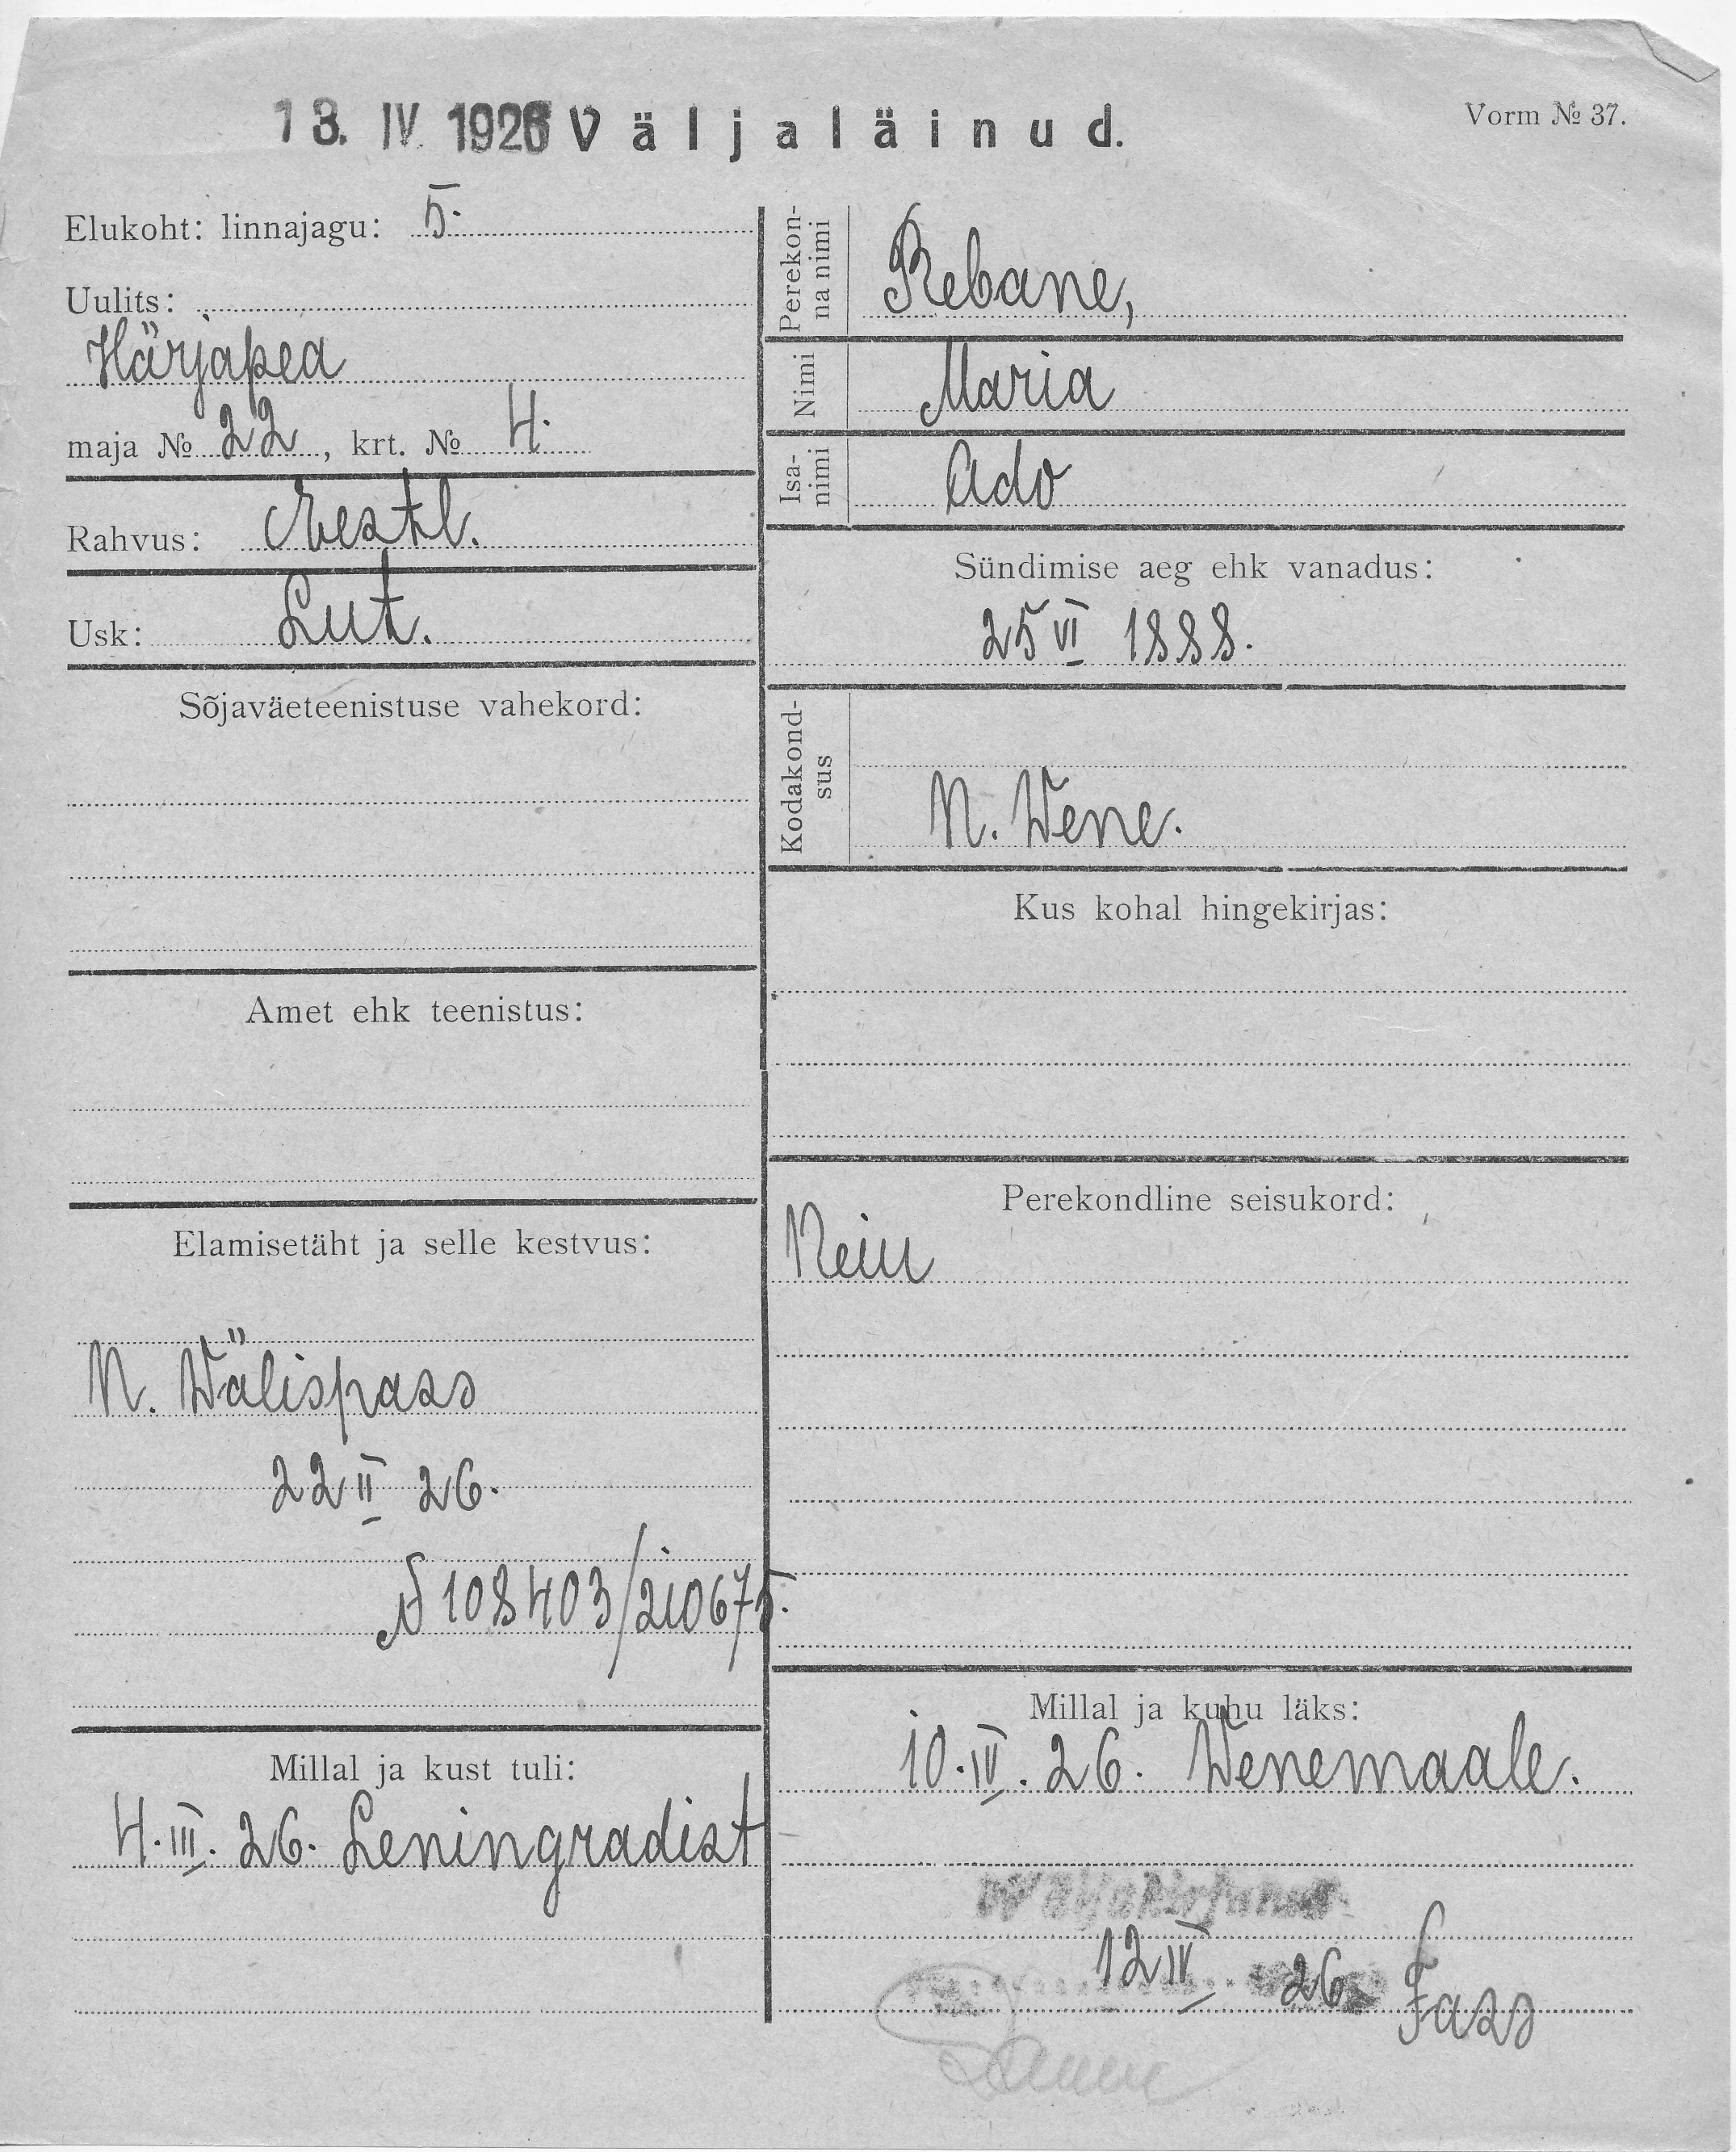 13. IV. 1926 Väljaläinud.
Vorm № 37.
Elukoht: linnajagu: 5.
Uulits:
Härjapea
maja № 22, krt. № 4.
Rahvus: Eestl.
Usk: Lut.
Sõjaväeteenistuse vahekord:
Amet ehk teenistus:
Elamisetäht ja selle kestvus:
N. Wälispass
22 II 26.
№ 108403/210675.
Millal ja kust tuli:
4. III. 26. Leningradist
Perekon-
na nimi
Rebane,
Nimi Maria
Isa-
nimi
Ado
Sündimise aeg ehk vanadus:
25 VI 1888.
Kodakond-
sus
N. Wene.
Kus kohal hingekirjas:
Perekondline seisukord:
Neiu
Millal ja kuhu läks:
10. IV. 26. Wenemaale.
Wäljakirjutatud
12 IV 26. Fass